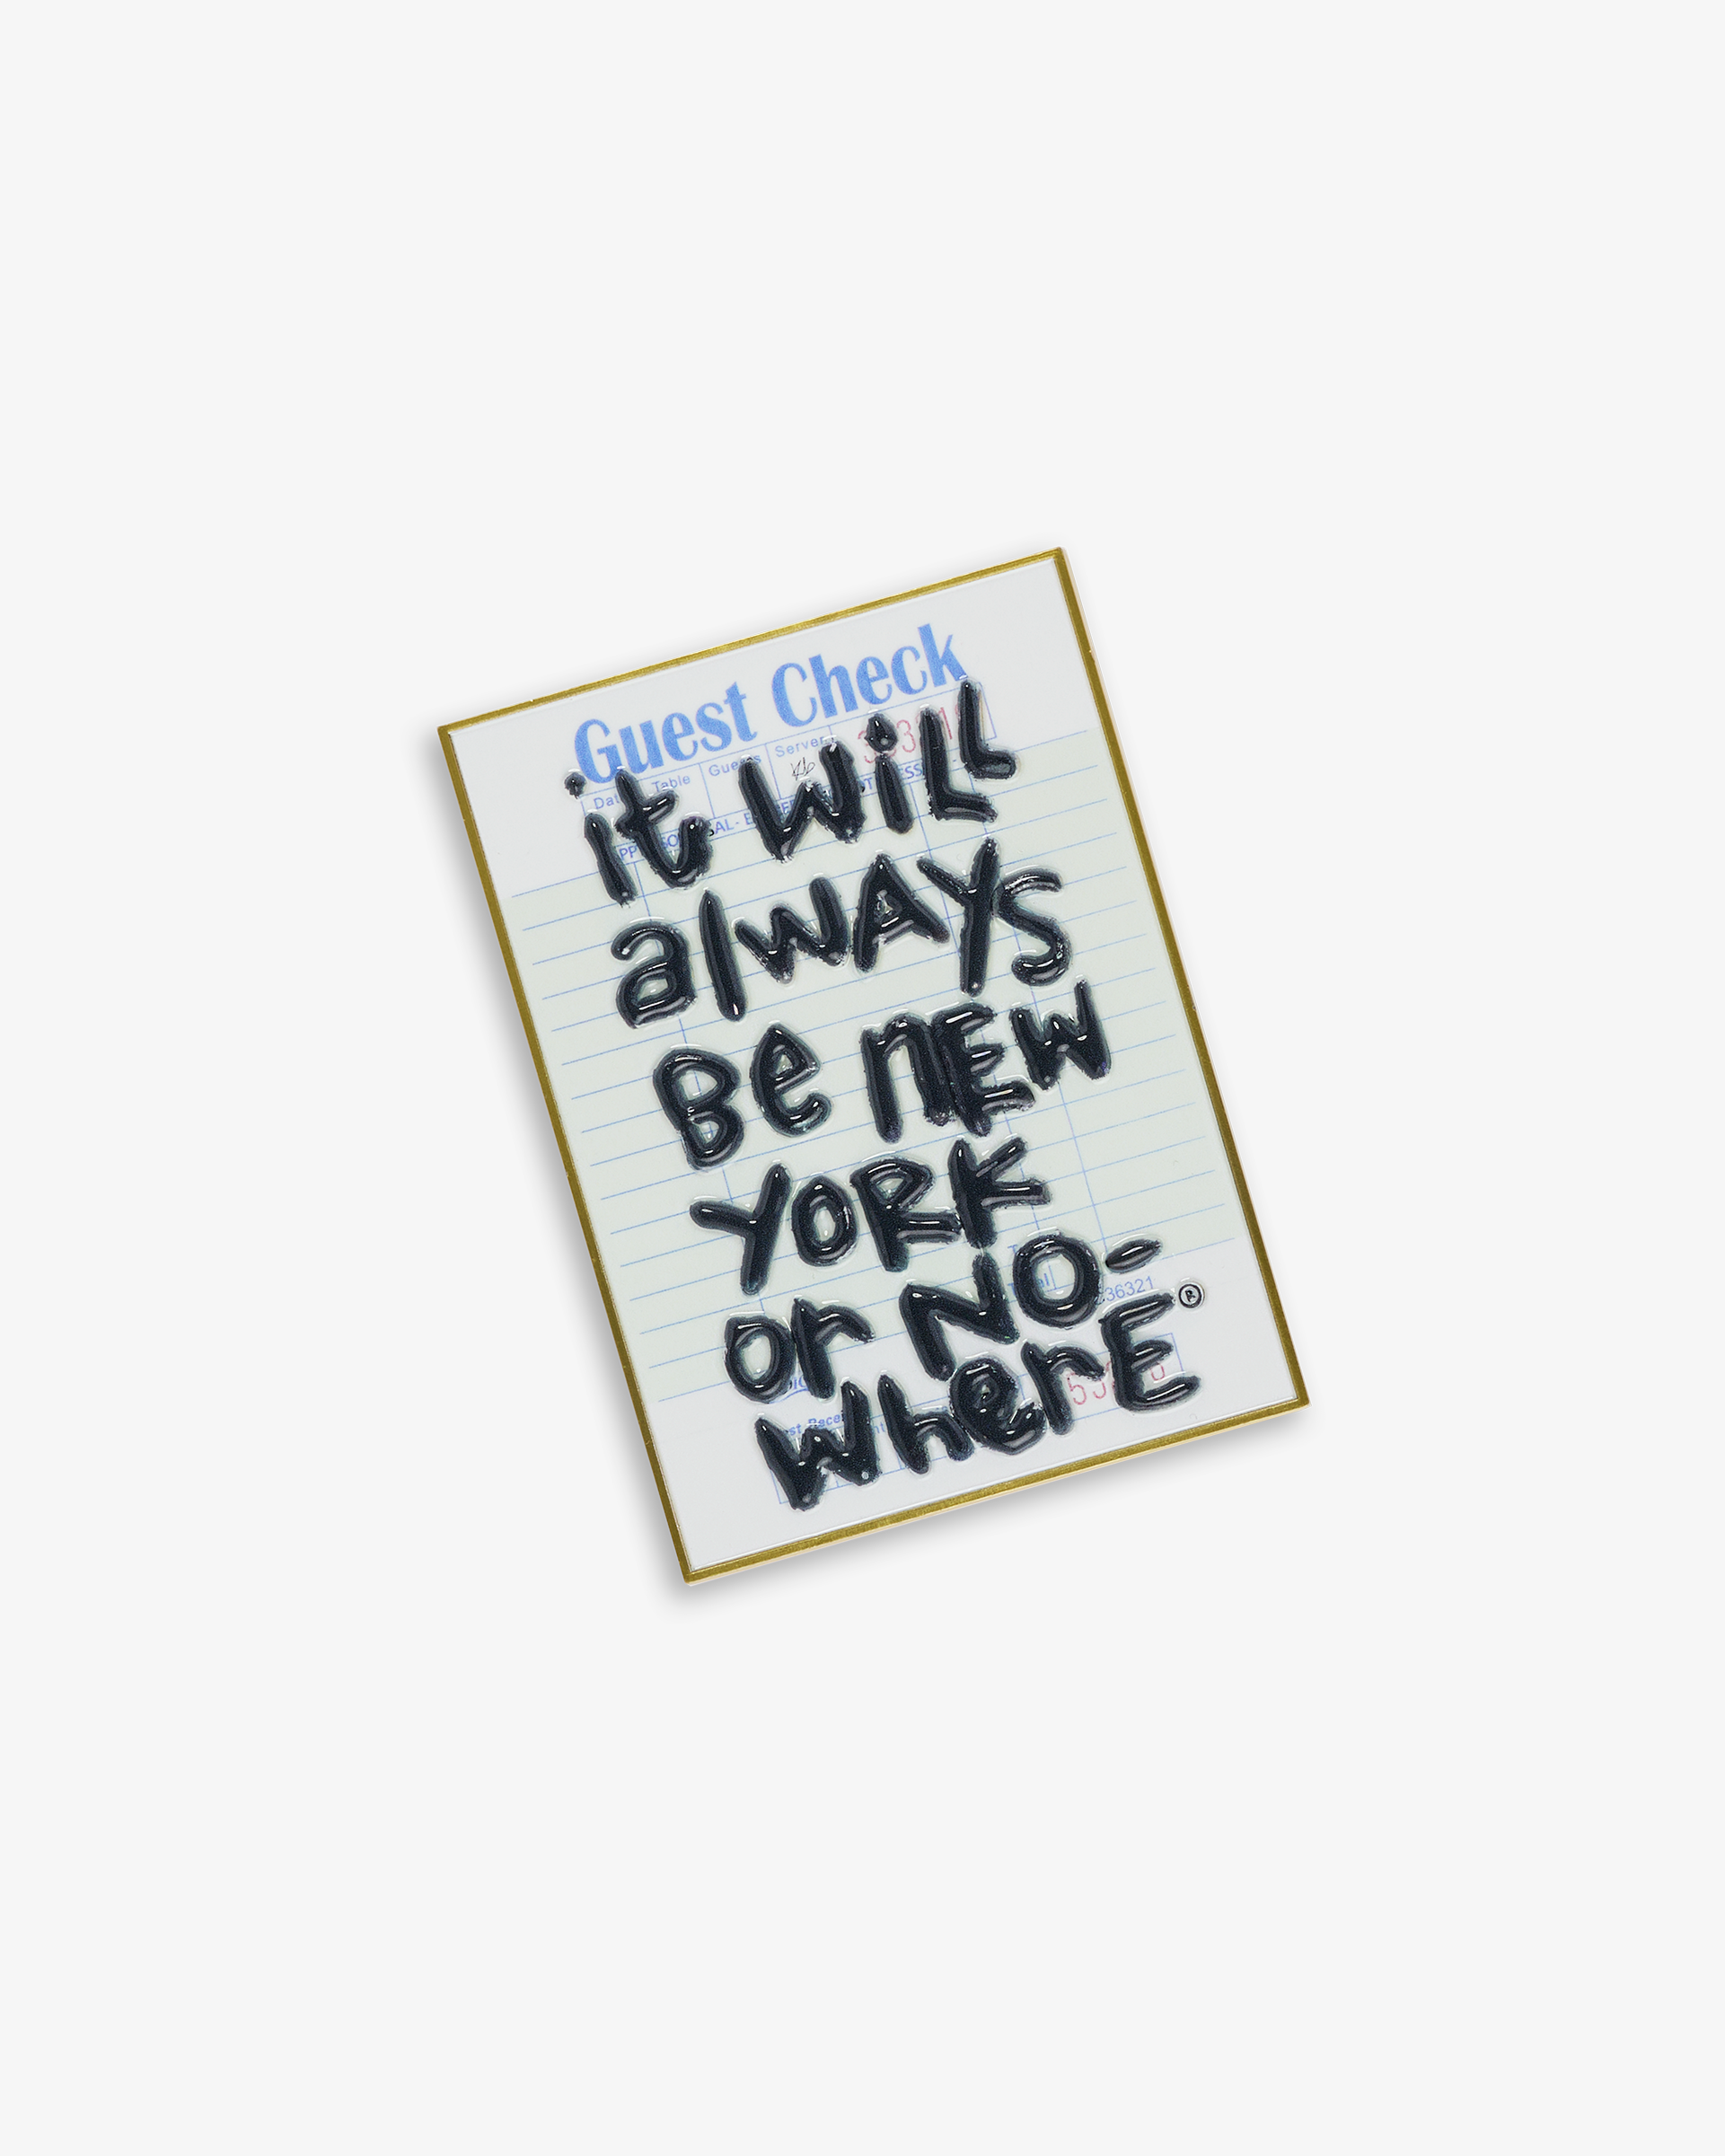 Guest Check
Table
Server
it will
always
Be new
YORK
or NO-
where®
36321